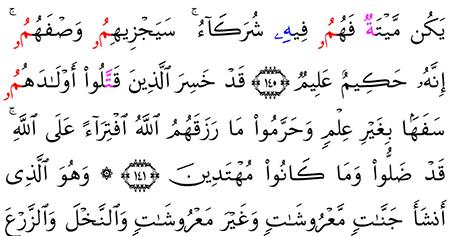 يَكُن مَّيْتَةٌ فَهُمُۥ فِيهِۦ شُرَكَآءُ ۚ سَيَجْزِيهِمُۥ وَصْفَهُمُۥ ۚ
إِنَّهُۥ حَكِيمٌ عَلِيمٌ ١٤٠ قَدْ خَسِرَ ٱلَّذِينَ قَتَّلُوا۟ أَوْلَـٰدَهُمُۥ
سَفَهَۢا بِغَيْرِ عِلْمٍ وَحَرَّمُوا۟ مَا رَزَقَهُمُ ٱللَّهُ ٱفْتِرَآءً عَلَى ٱللَّهِ ۚ
قَدْ ضَلُّوا۟ وَمَا كَانُوا۟ مُهْتَدِينَ ١٤١ ۞ وَهُوَ ٱلَّذِى
أَنشَأَ جَنَّـٰتٍ مَّعْرُوشَـٰتٍ وَغَيْرَ مَعْرُوشَـٰتٍ وَٱلنَّخْلَ وَٱلزَّرْعَ